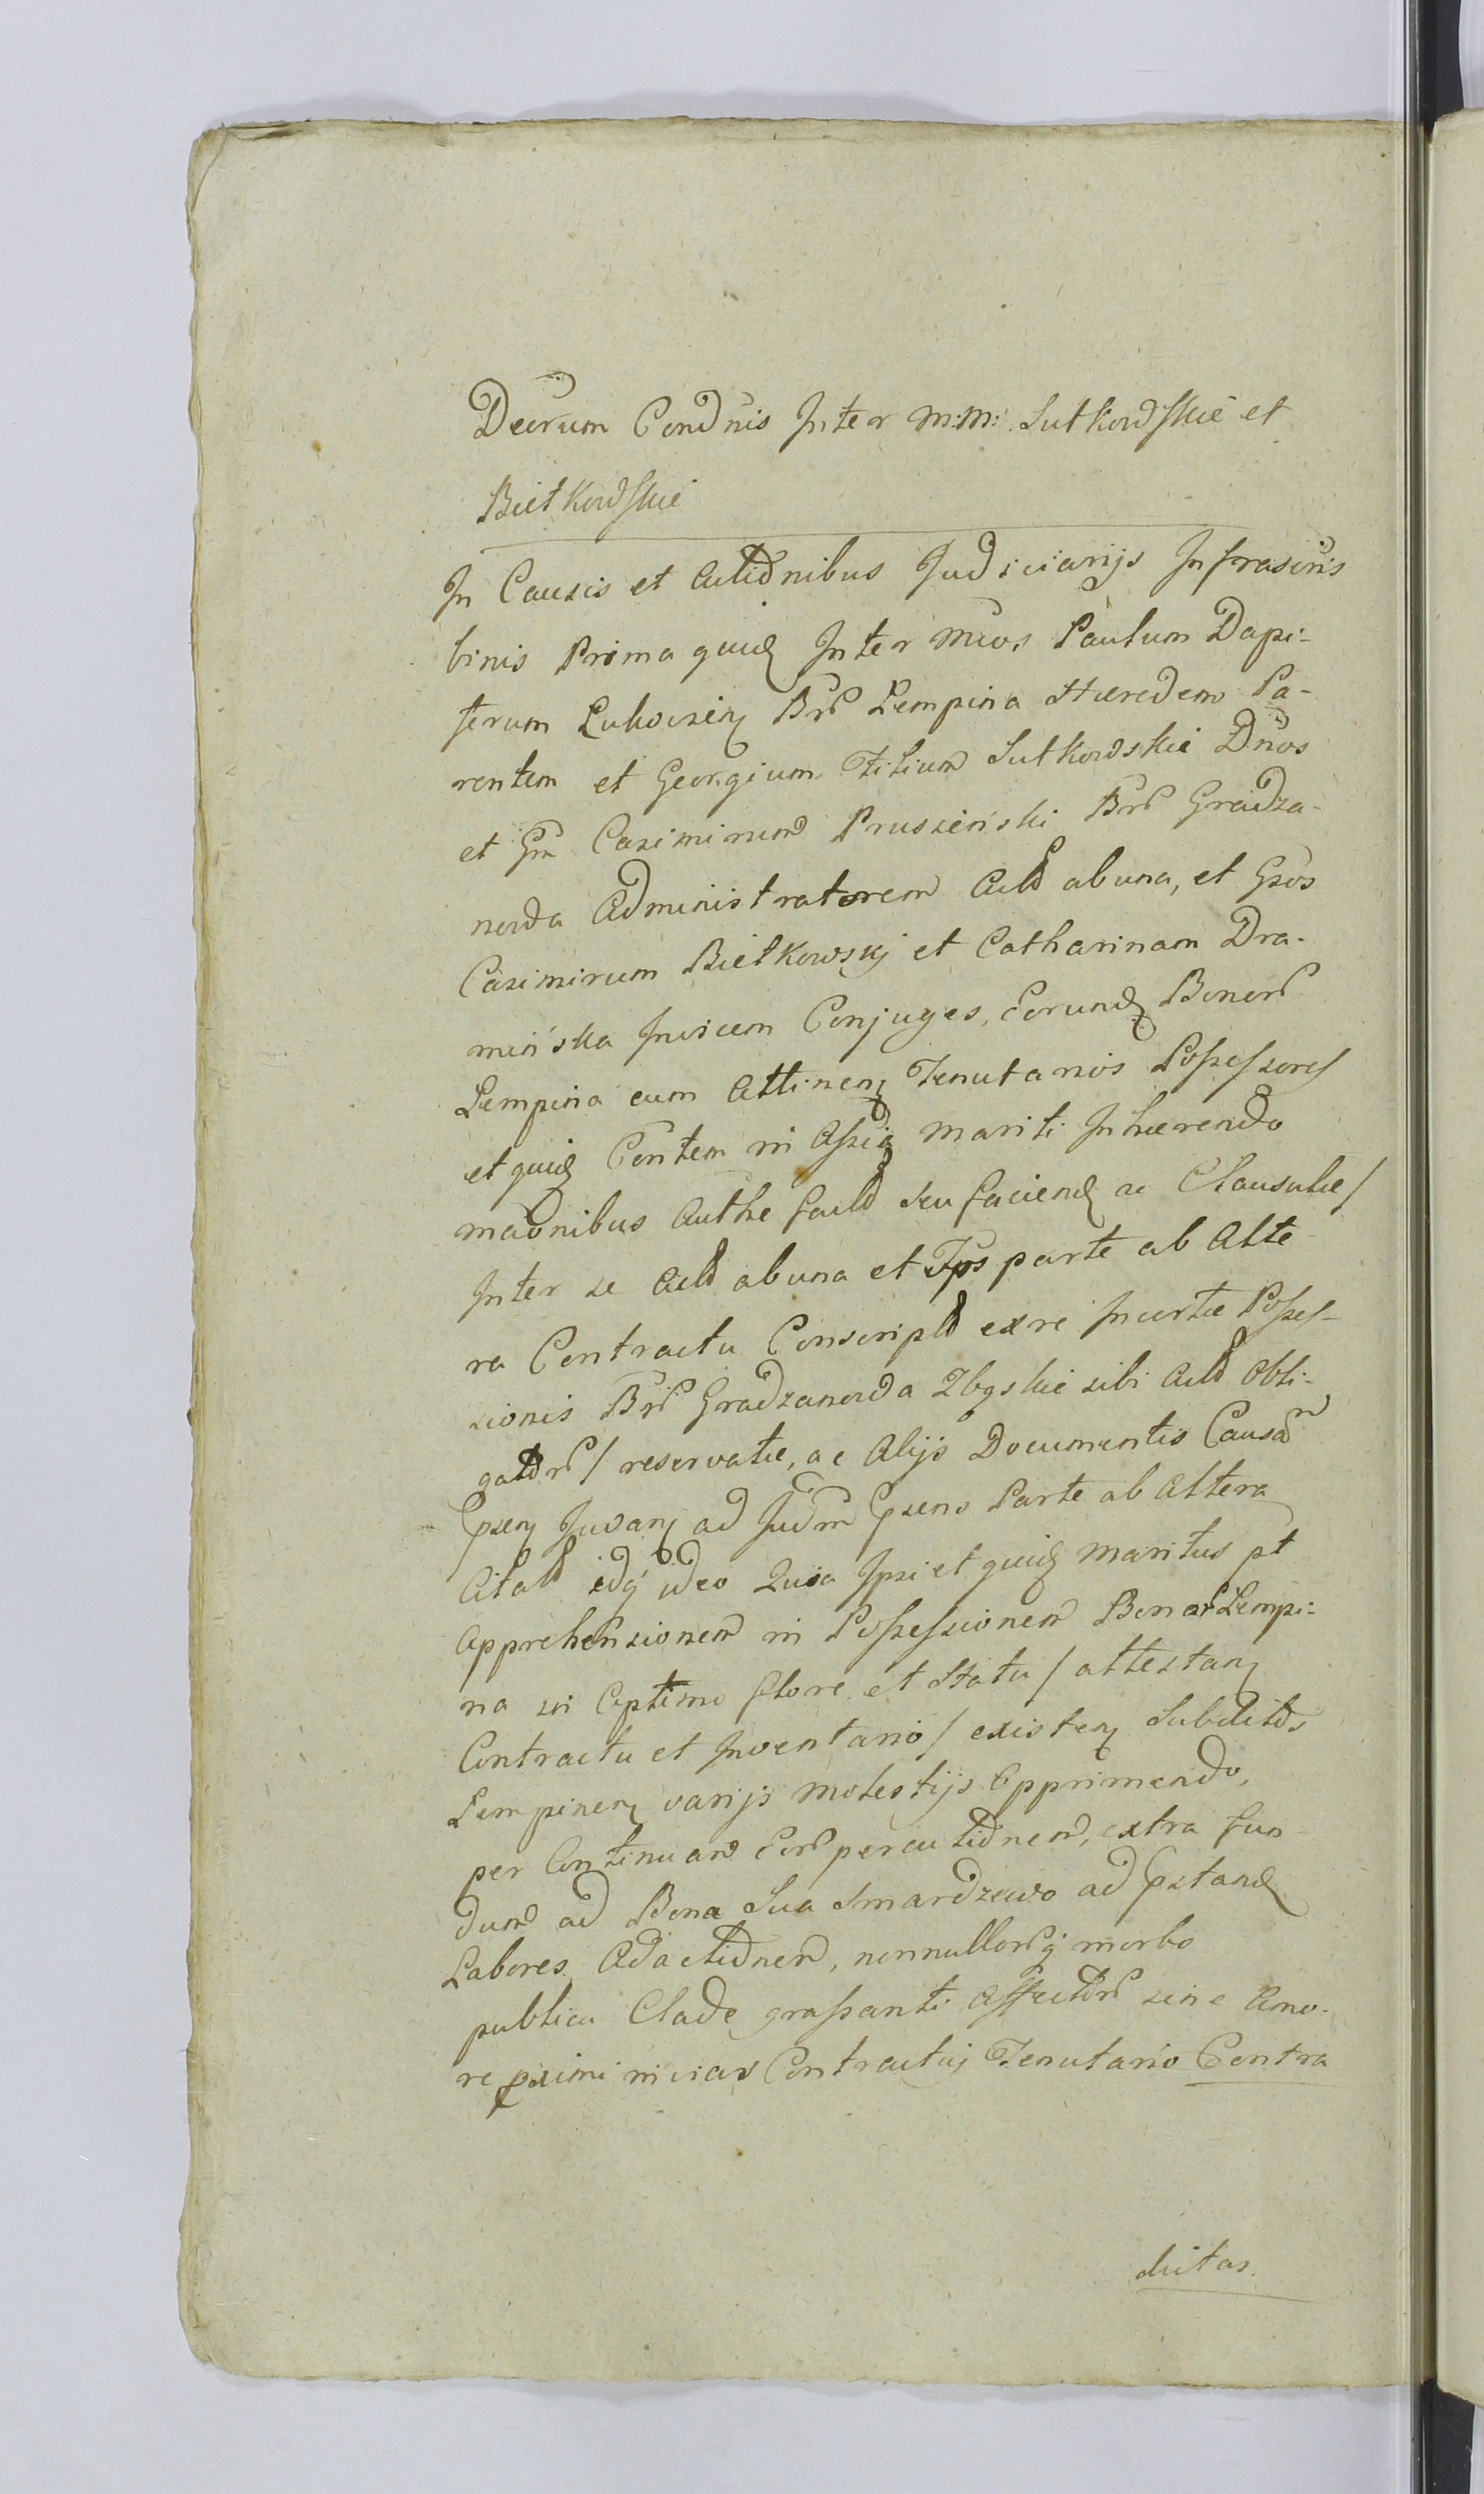 Decrum Condnis Inter M:M: Sutkowskie et
Bietkowskie
In Causis et Actidnibus Judiciarijs Infrascris
binis Prima quid Inter Mcos Paulum Dapi-
ferum Lukovien Brr Lempina Hæredem Pa-
rentem et Georgium Filium Sutkowskie Dnos
et Gm Casimirum Pruszeński Brr Gradza-
nowa Administratorem Actt ab una, et Gsos
Casimirum Bietkowskj et Catharinam Dra-
mińska Invicem Conjuges, Eorund Bonorr
Lempina cum Attinen Tenutarios Possessores
et quid Contem in Assia Mariti Inhærendo
maonibus Authe factt seu faciend ac Clausulæ /
Inter se Actt ab una et Ips parte ab Alte
ra Contractu Conscriptt exre Incertæ Posses-
sionis Brr Gradzanowa Zbgskie sibi Actt Obli-
gattrr / reservatæ, ac Alijs Documentis Causam
psen Juvan ad Judm psens Parte ab Altera
Citatt idq ideo Quia Ipsi et quid Maritus pt
Apprehensionem in Possessionem Bonor Lempi-
na in Optimo flore et Statu / attestan
Contractu et Inventario / existen Subditos
Lempinen varijs Molestijs Opprimendo,
per Continuam Eorr percutidnem, extra fun-
dum ad Bona Sua Smardzewo ad pstand
Labores Adactidnem, nonnullorrq morbo
publica Clade grassanti Affectorr sine Amo-
re pximi in vias Contractuj Tenutario Contra
dictas.